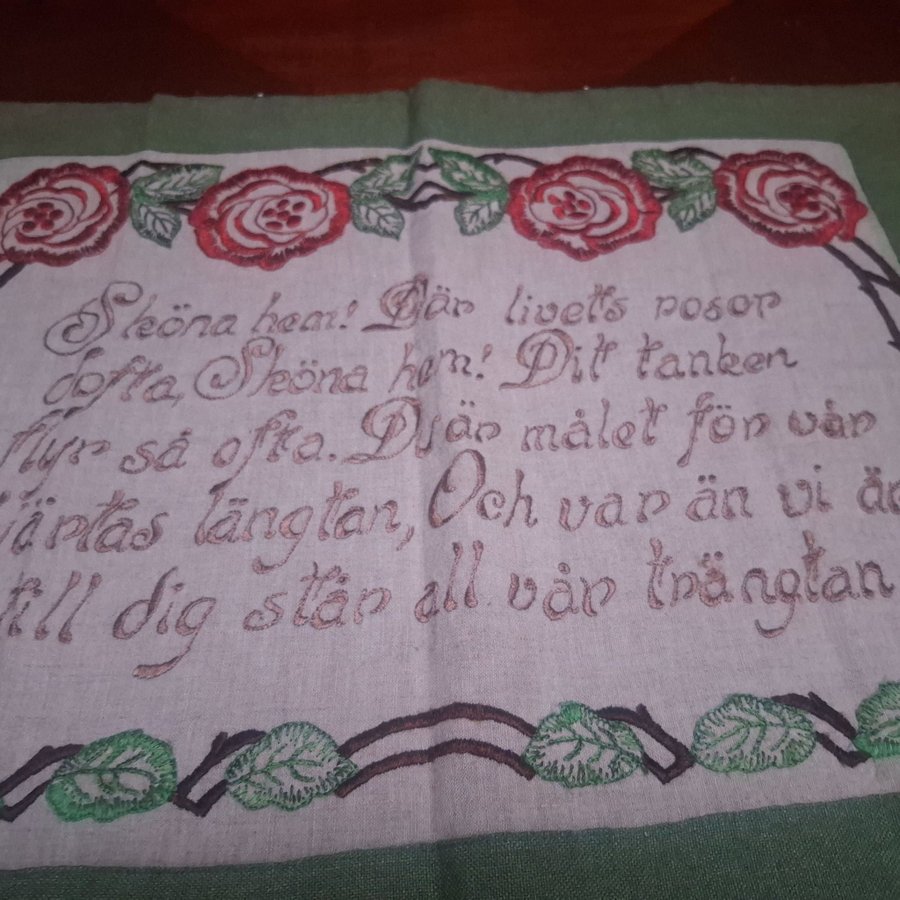 Sköna hem! Där livets rosor
dofta, Sköna hem! Dit tanken
flyr så ofta. Du är målet för vår
hjärtas längtan, Och var än vi är
till dig står all vår trängtan